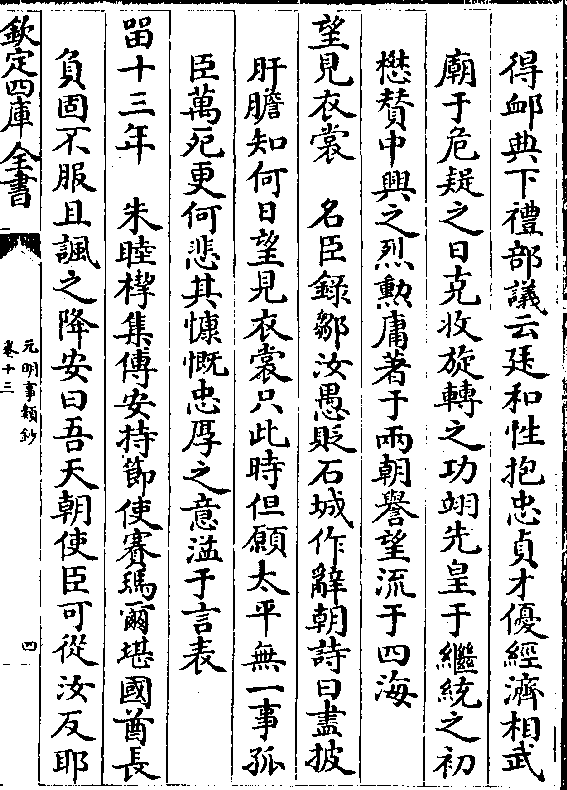 得䘏典下禮部議云廷和性抱忠貞才優經濟相武
廟于危疑之日克收旋轉之功翊先皇于繼統之初
懋賛中興之烈勲庸著于兩朝譽望流于四海
望見衣裳　名臣錄鄒汝愚貶石城作辭朝詩曰盡披
肝膽知何日望見衣裳只此時但願太平無一事孤
臣萬死更何悲其慷慨忠厚之意溢于言表
留十三年　朱睦㮮集傅安持節使賽瑪爾堪國酋長
負固不服且諷之降安曰吾天朝使臣可從汝反耶
欽定四庫全書
元明事類鈔
卷十三
四